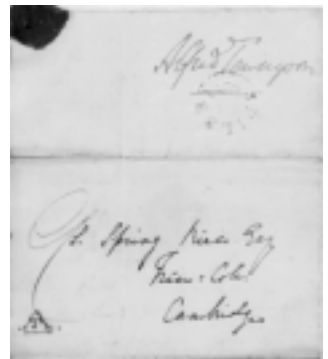 Alfred Tennyson
S. Spring Rice Esq
Trin: Coll:
Cambridge